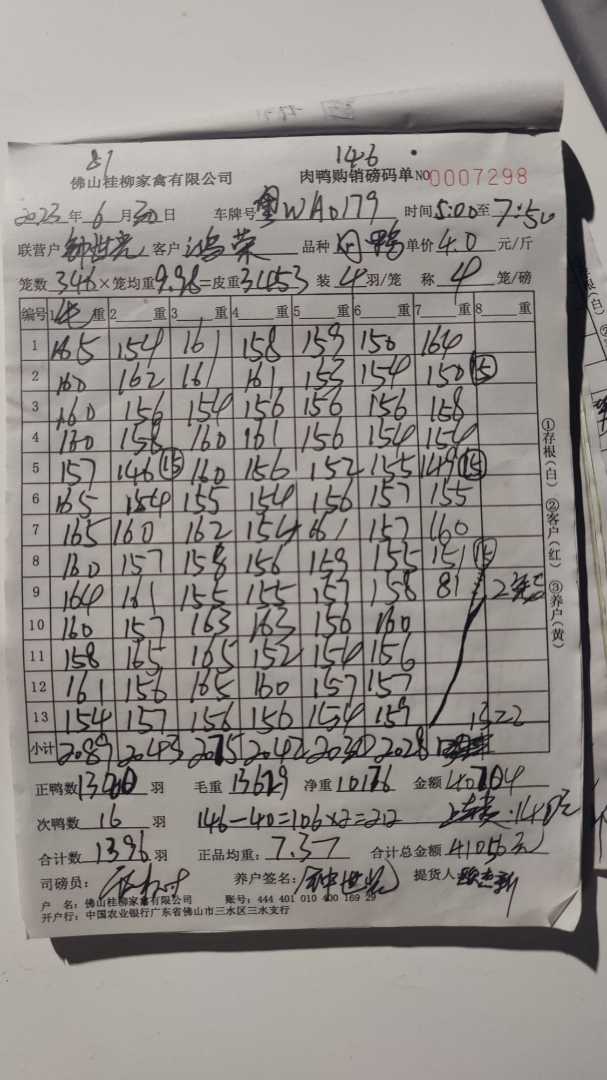 81 146
佛山桂柳家禽有限公司 肉鸭购销磅码单 NO 0007298
2023年6月30日 车牌号 粤WA0179 时间5:00至7:50
联营户 钟世亮 客户 鸿荣 品种 肉鸭 单价 4.0 元/斤
笼数 346 ×笼均重 9.98 =皮重 3453 装 4 羽/笼 称 4 笼/磅
编号 1 重 2 重 3 重 4 重 5 重 6 重 7 重 8 重
1 165 154 161 158 159 150 164
2 160 162 161 161 153 154 150 ⑮
3 160 156 154 156 156 156 158
4 160 158 160 161 156 154 154
5 157 146 ⑮ 160 156 152 155 149 ⑮
6 165 154 155 154 156 157 155
7 165 160 162 154 161 157 160
8 160 157 158 156 159 155 151 ⑮
9 164 161 155 155 157 158 81 2
10 160 157 163 163 156 160
11 158 165 165 152 154 156
12 161 156 165 160 157 157
13 154 157 156 156 154 159 1322
小计 2089 2043 2075 2042 2030 2028
正鸭数 1380 羽 毛重 13629 净重 10176 金额 40704
次鸭数 16 羽 146-40=106×2=212
合计数 1396 羽 正品均重: 7.37 合计总金额 41056元
司磅员: 养户签名: 提货人
户 名: 佛山桂柳家禽有限公司 账号: 444 401 010 400 169 29
开户行: 中国农业银行广东省佛山市三水区三水支行
①存根(白) ②客户(红) ③养户(黄)